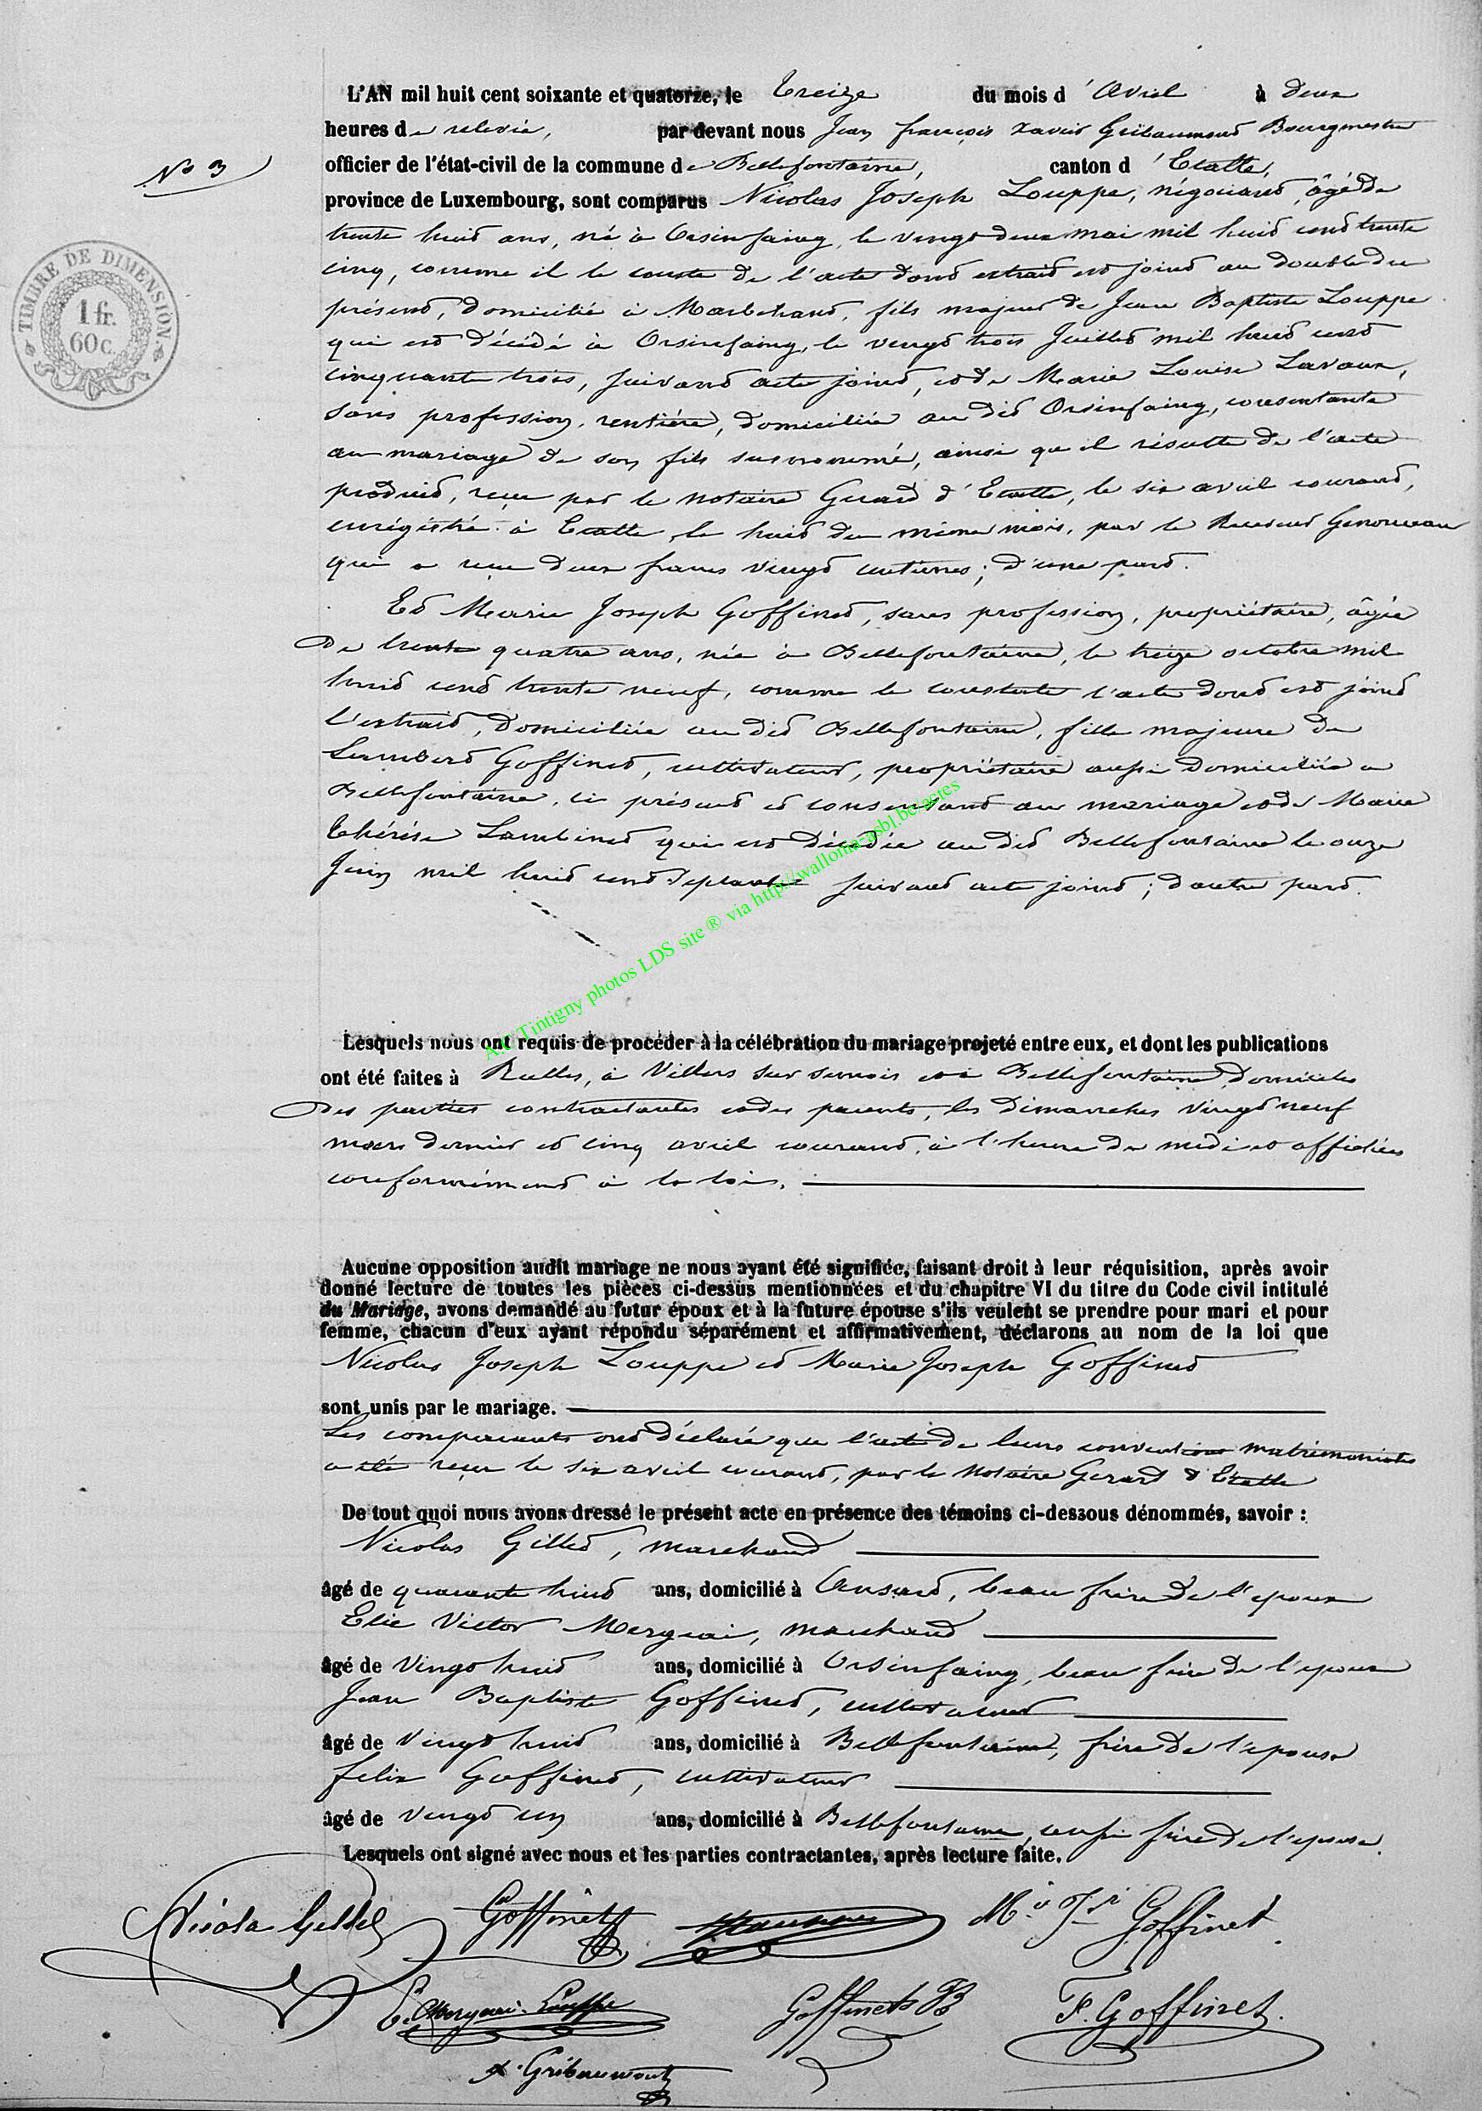 L'AN mil huit cent soixante et quatorze, le treize du mois d'avril à deux
heures de relevée, par devant nous Jean François Xavier Gribaumont Bourgmestre
N° 3
officier de l'état-civil de la commune de Bellefontaine, canton d'Etalle,
province de Luxembourg, sont comparus Nicolas Joseph Louppe, négociant, âgé de
trente huit ans, né à Orsinfaing, le vingt deux mai mil huit cent trente
cinq, comme il le conste de l'acte dont extrait est joint au double du
présent, domicilié à Marbehant, fils majeur de Jean Baptiste Louppe
qui est décédé à Orsinfaing, le vingt trois Juillet mil huit cent
cinquante trois, suivant acte joint, et de Marie Louise Lavaux,
sans profession, rentière, domiciliée au dit Orsinfaing, consentante
au mariage de son fils susnommé, ainsi qu'il résulte de l'acte
produit, reçu par le notaire Gerard d'Etalle, le six avril courant,
enrégistré à Etalle, le huit du même mois, par le Receveur
qui a reçu deux francs vingt centimes; d'une part.
Et Marie Joseph Goffinet, sans profession, propriétaire, âgée
de trente quatre ans, née à Bellefontaine, le treize octobre mil
huit cent trente neuf, comme le constate l'acte dont est joint
l'extrait, domiciliée au dit Bellefontaine, fille majeure de
Lambert Goffinet, cultivateur, propriétaire aussi domicilié à
Bellefontaine, ci présent et consentant au mariage et de Marie
Thérèse Lambinet qui est décédée au dit Bellefontaine le onze
Juin mil huit cent septante suivant acte joint; d'autre part.
A.C Tintigny photos LDS site ® via http://wallonia-asbl.be/actes
Lesquels nous ont requis de procéder à la célébration du mariage projeté entre eux, et dont les publications
ont été faites à Rulles, à Villers sur semois et à Bellefontaine, domiciles
des parties contractantes et des parents, les dimanches vingt neuf
mars dernier et cinq avril courant, à l'heure de midi et affichées
conformément à la loi.
Aucune opposition audit mariage ne nous ayant été signifiée, faisant droit à leur réquisition, après avoir
donné lecture de toutes les pièces ci-dessus mentionnées et du chapitre VI du titre du Code civil intitulé
du Mariage, avons demandé au futur époux et à la future épouse s'ils veulent se prendre pour mari et pour
femme, chacun d'eux ayant répondu séparément et affirmativement, déclarons au nom de la loi que
Nicolas Joseph Louppe et Marie Joseph Goffinet
sont unis par le mariage.
Les comparants ont déclaré que l'acte de leurs conventions matrimoniales
a été reçu le six avril courant, par le Notaire Gerard d'Etalle
De tout quoi nous avons dressé le présent acte en présence des témoins ci-dessous dénommés, savoir :
Nicolas Gillet, marchand
âgé de quarante huit ans, domicilié à Ansart, beau frère de l'epoux
Elie Victor Mergeai, marchand
âgé de vingt huit ans, domicilié à Orsinfaing, beau frère de l'epoux
Jean Baptiste Goffinet, cultivateur
âgé de vingt huit ans, domicilié à Bellefontaine, frère de l'epouse
felix Goffinet, cultivateur
âgé de vingt un ans, domicilié à Bellefontaine, aussi frère de l'epouse.
Lesquels ont signé avec nous et les parties contractantes, après lecture faite.
Goffinet
Goffinet
E. Mergeai-Louppe
Goffinet JB
F. Goffinet.
x. Gribaumont
TIMBRE DE DIMENSION
1 fr.
60 c.